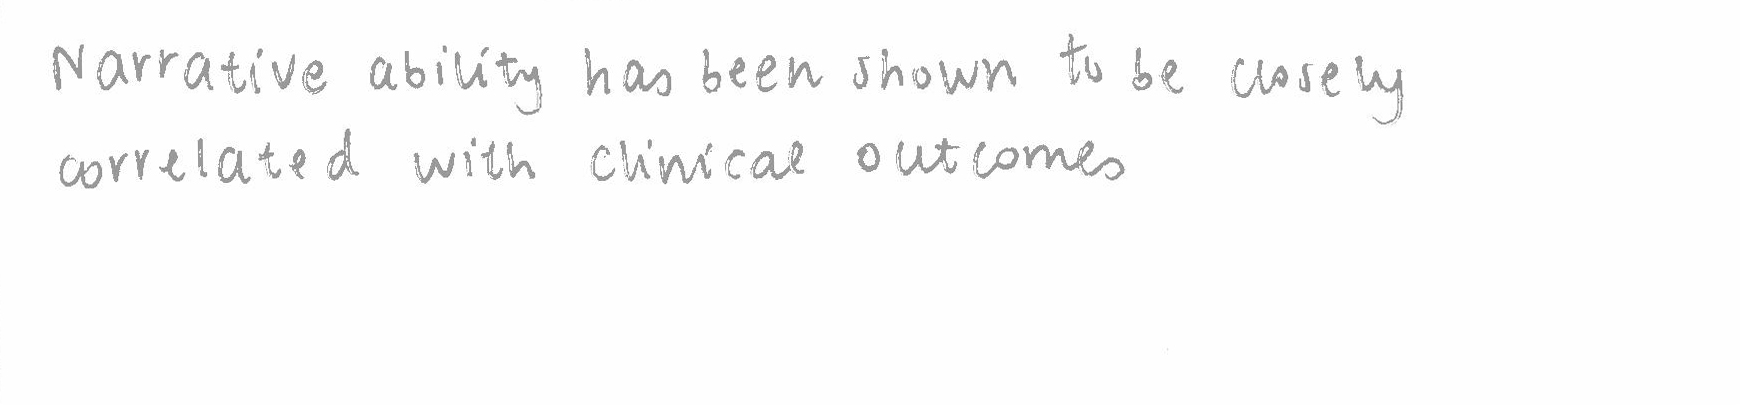 Narrative ability has been shown to be closely
correlated with clinical outcomes